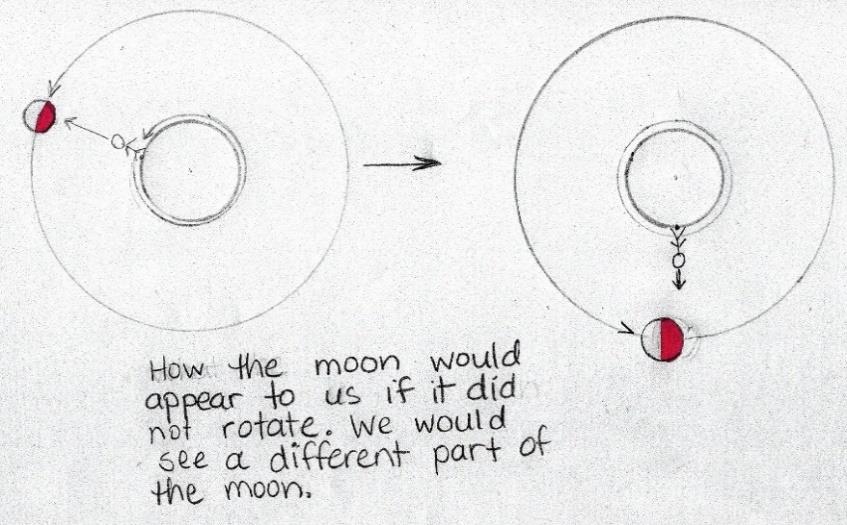 How the moon would
appear to us if it did
not rotate. We would
see a different part of
the moon.